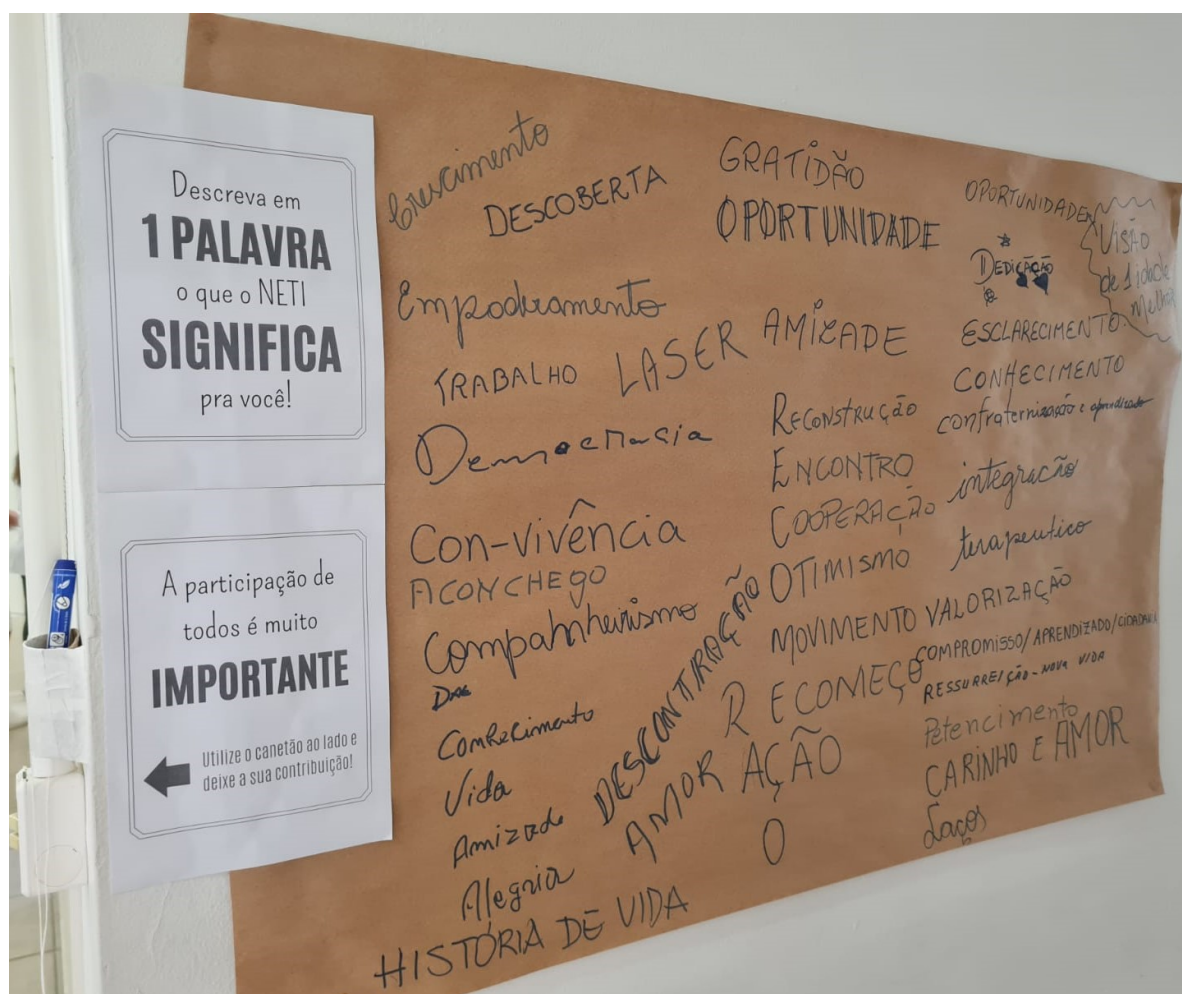 Descreva em
1 PALAVRA
o que o NETI
SIGNIFICA
pra você!
A participação de
todos é muito
IMPORTANTE
Utilize o canetão ao lado e
deixe a sua contribuição!
Crescimento
DESCOBERTA
Empoderamento
TRABALHO
LASER
Democracia
Con-vivência
ACONCHEGO
Companheirismo
Conhecimento
Vida
Amizade
Alegria
HISTÓRIA DE VIDA
DESCONTIRAÇÃO
AMOR
GRATIDÃO
OPORTUNIDADE
AMIZADE
RECONSTRUÇÃO
ENCONTRO
COOPERAÇÃO
OTIMISMO
MOVIMENTO
RECOMEÇO
AÇÃO
O
OPORTUNIDADE
Visão
de 1 idade
Melhor
DEDICAÇÃO
ESCLARECIMENTO
CONHECIMENTO
confraternização e aprendizado
integração
terapeutico
VALORIZAÇÃO
COMPROMISSO/APRENDIZADO/CIDADANIA
RESSURREIÇÃO - NOVA VIDA
Petencimento
CARINHO E AMOR
Laços